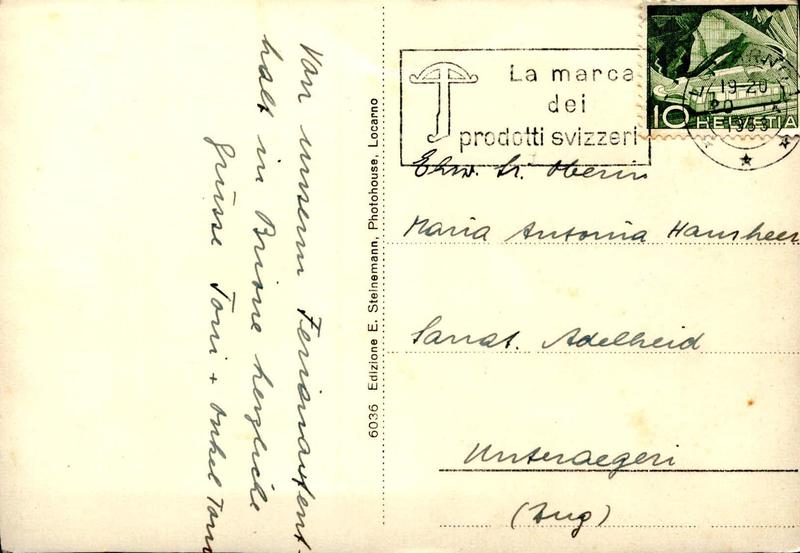 Von unserm Ferienaufent-
halt in Brione herzliche
Grüsse Toni + Onkel Tom
6036 Edizione E. Steinemann, Photohouse, Locarno
La marca
dei
prodotti svizzeri
10 HELVETIA
19-20
1953
Ehrw. Sr. Oberin
Maria Antonia Hausheer
Sanat. Adelheid
Unteraegeri
(Zug)